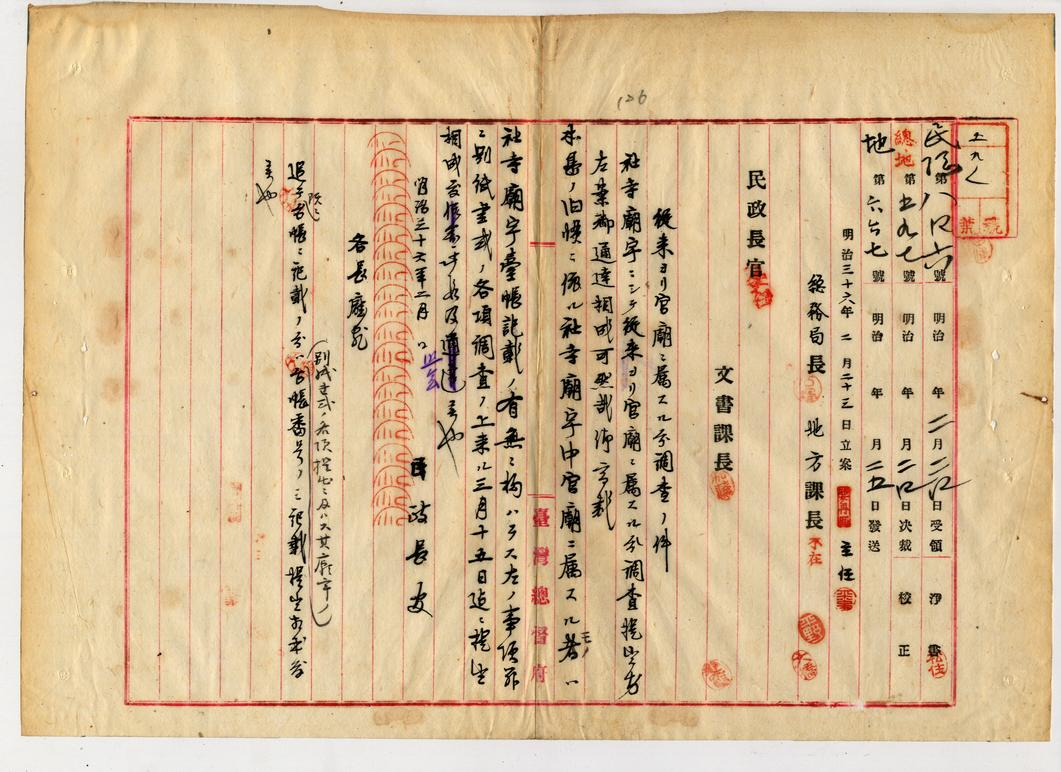 126
五九七
民總第八〇六號 明治 年二月二〇日受領 淨書
總地第五九七號 明治 年 月二〇日決裁 校正
地第六六七號 明治 年 月二五日發送
明治三十六年二月二十三日立案 主任
總務局長 地方課長 不在
民政長官
文書課長
從来ヨリ官廟ニ属スル分調査ノ件
社寺廟宇ニシテ從来ヨリ官廟ニ属スル分調査提出方
左案御通達相成可然哉御高裁
本島ノ旧慣ニ依ル社寺廟宇中官廟ニ属スル者ハ
モノ
社寺廟宇臺帳記載ノ有無ニ拘ハラス左ノ事項
ニ別紙書式ノ各項調査ノ上来ル三月十五日迄ニ提出
相成
通達
明治三十六年二月 日
民政長官
各長廳宛
別紙書式ノ各項提出ニ及ハス其廳
追テ台帳ニ記載ノ分ハ台帳番号ノミ記載提出
臺灣總督府